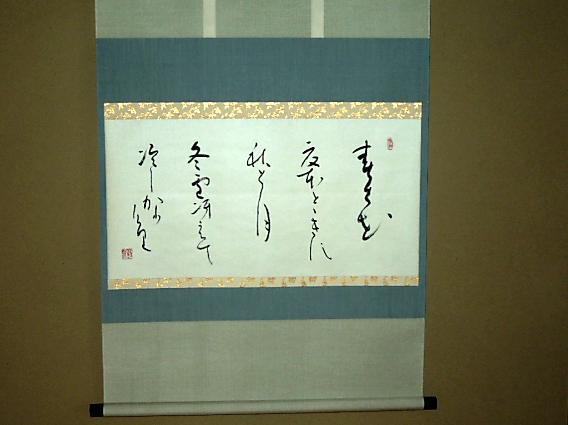 春は花
夏ほとゝきす
秋は月
冬雪冴えて
冷しかりけり